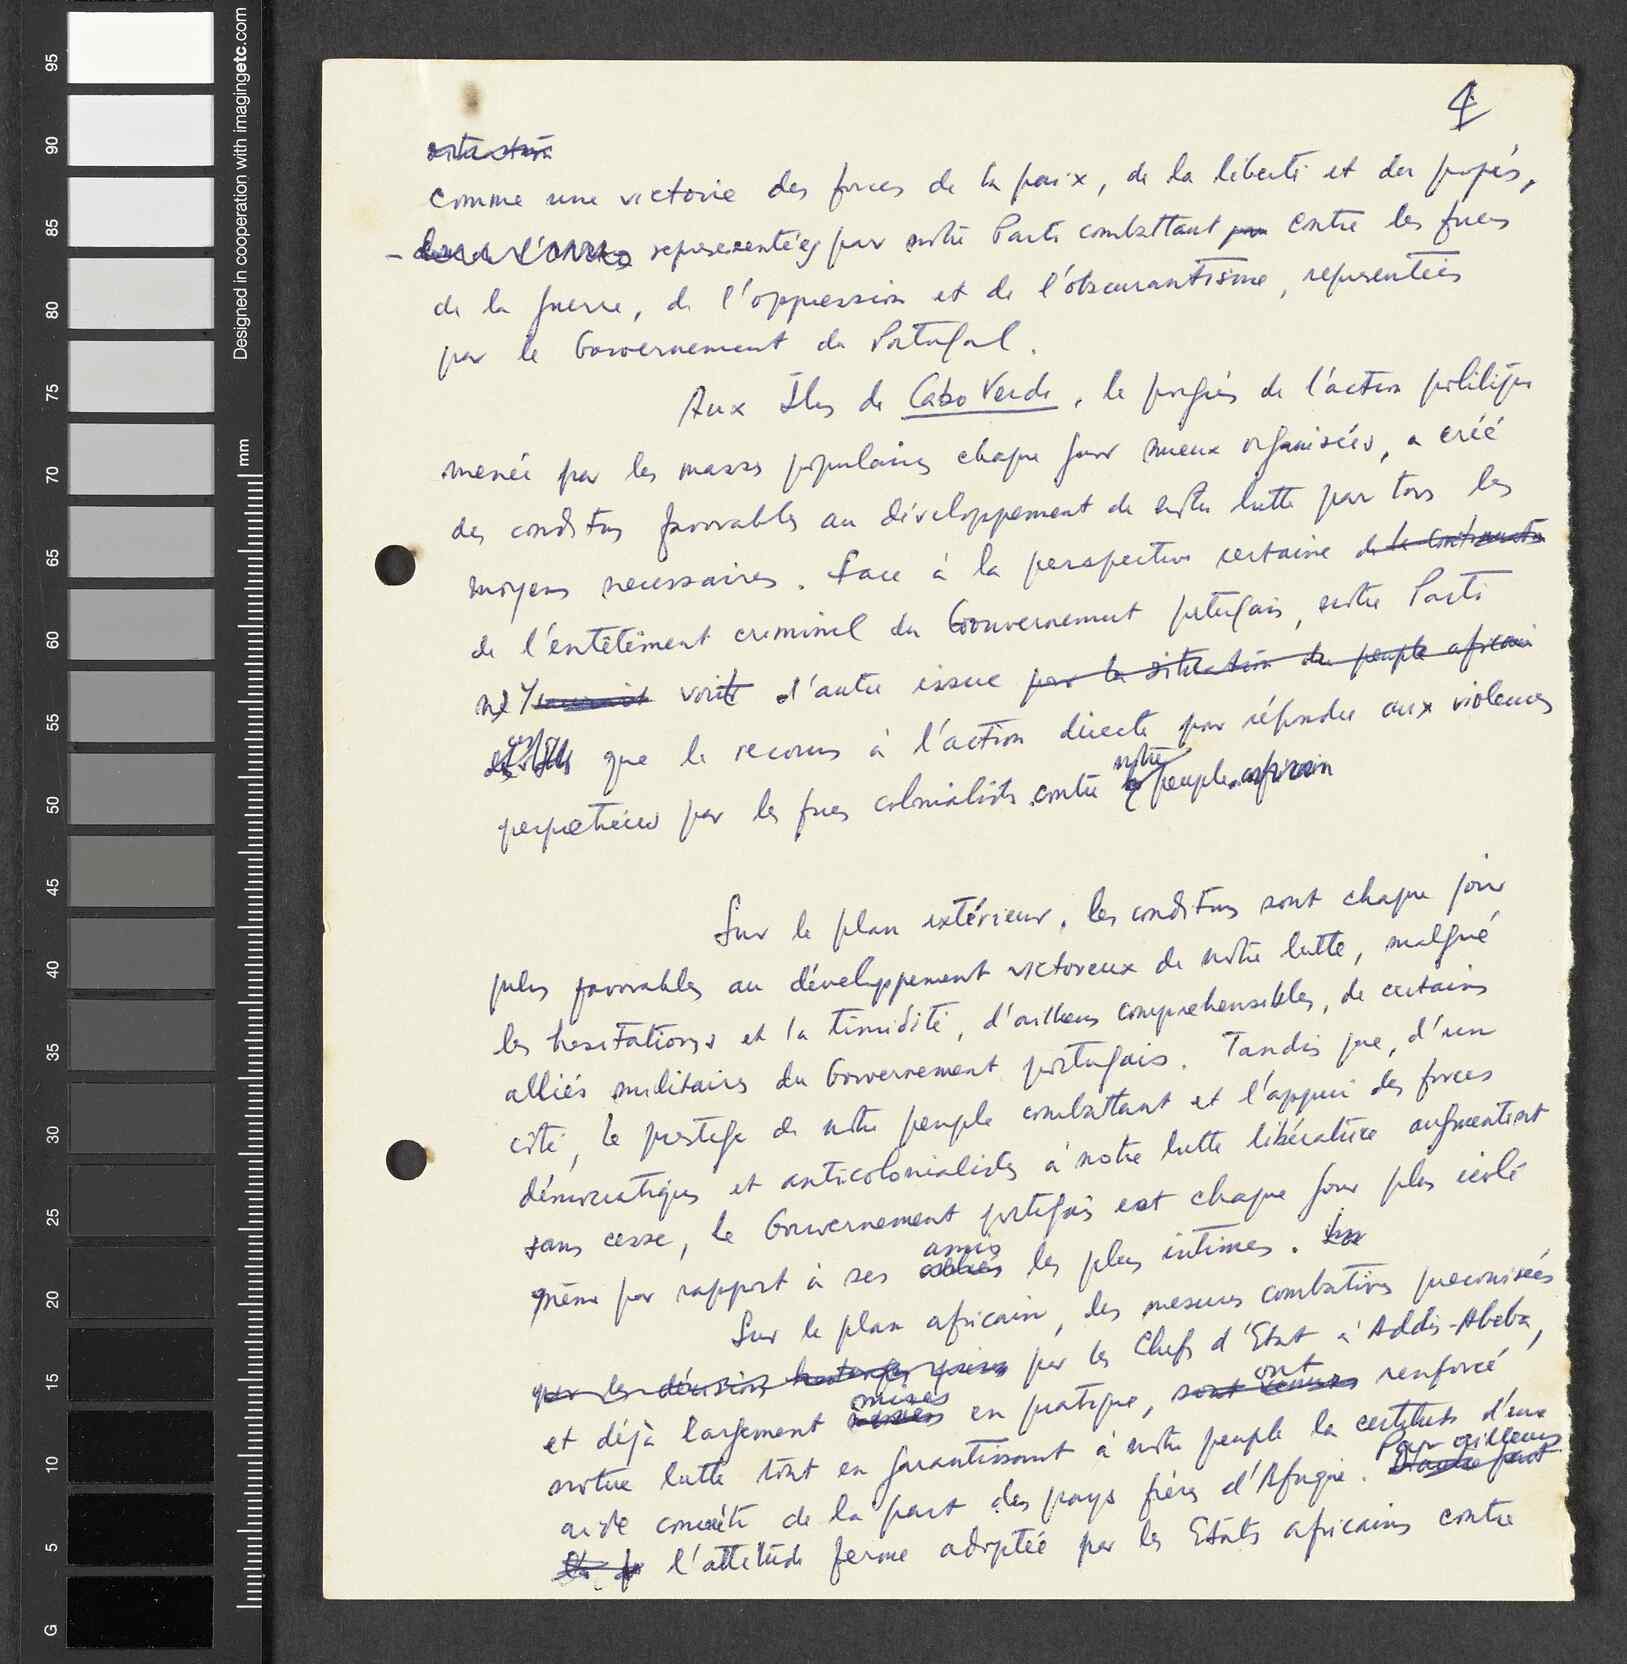 4
situation
comme une victoire des forces de la paix, de la liberté et du progrès,
- représentées par notre Parti combattant contre les forces
de la guerre, de l'oppression et de l'obscurantisme, représentées
par le Gouvernement du Portugal.
Aux Iles de Cabo Verde, le progrès de l'action politique
menée par les masses populaires chaque jour mieux organisées, a créé
des conditions favorables au développement de notre lutte par tous les
moyens necessaires. Face à la perspective certaine de la continuation
de l'entêtement criminel du Gouvernement portugais, notre Parti
ne voit d'autre issue pour la situation du peuple africain
que le recours à l'action directe pour répondre aux violences
perpetrées par les forces colonialistes contre notre peuple. africain
Sur le plan extérieur, les conditions sont chaque jour
plus favorables au développement victorieux de notre lutte, malgré
les hesitations et la timidité, d'ailleurs comprehensibles, de certains
alliés militaires du Gouvernement portugais. Tandis que, d'un
côté, le prestige de notre peuple combattant et l'appui des forces
démocratiques et anticolonialistes à notre lutte libératrice augmentent
sans cesse, le Gouvernement portugais est chaque jour plus isolé
même par rapport à ses alliés amis les plus intimes. Sur
Sur le plan africain, les mesures combatives preconisées
par les décisions prises par les Chefs d'Etat à Addis-Abeba,
et déjà largement mises en pratique, sont venues ont renforcé
notre lutte tout en garantissant à notre peuple la certitude d'une
aide concrète de la part des pays frères d'Afrique. D'autre part Par ailleurs
l'attitude ferme adoptée par les Etats africains contre
Designed in cooperation with imagingetc.com
mm
95
90
85
80
75
70
65
60
55
50
45
40
35
30
25
20
15
10
5
G